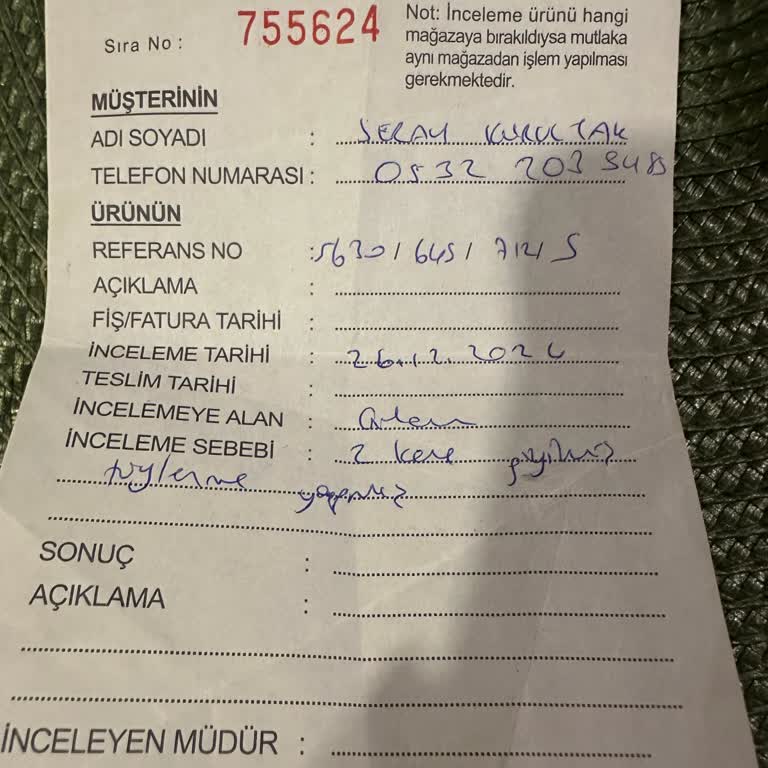 Sıra No : 755624
Not: İnceleme ürünü hangi
mağazaya bırakıldıysa mutlaka
aynı mağazadan işlem yapılması
gerekmektedir.
MÜŞTERİNİN
ADI SOYADI : SERAY KURULTAK
TELEFON NUMARASI : 0532 203 3485
ÜRÜNÜN
REFERANS NO : 5630 / 645 / 712 / S
AÇIKLAMA :
FİŞ/FATURA TARİHİ :
İNCELEME TARİHİ : 26.12.2024
TESLİM TARİHİ :
İNCELEMEYE ALAN :
İNCELEME SEBEBİ : 2 kere giyilmiş
tüylenme yapmış
SONUÇ :
AÇIKLAMA :
İNCELEYEN MÜDÜR :